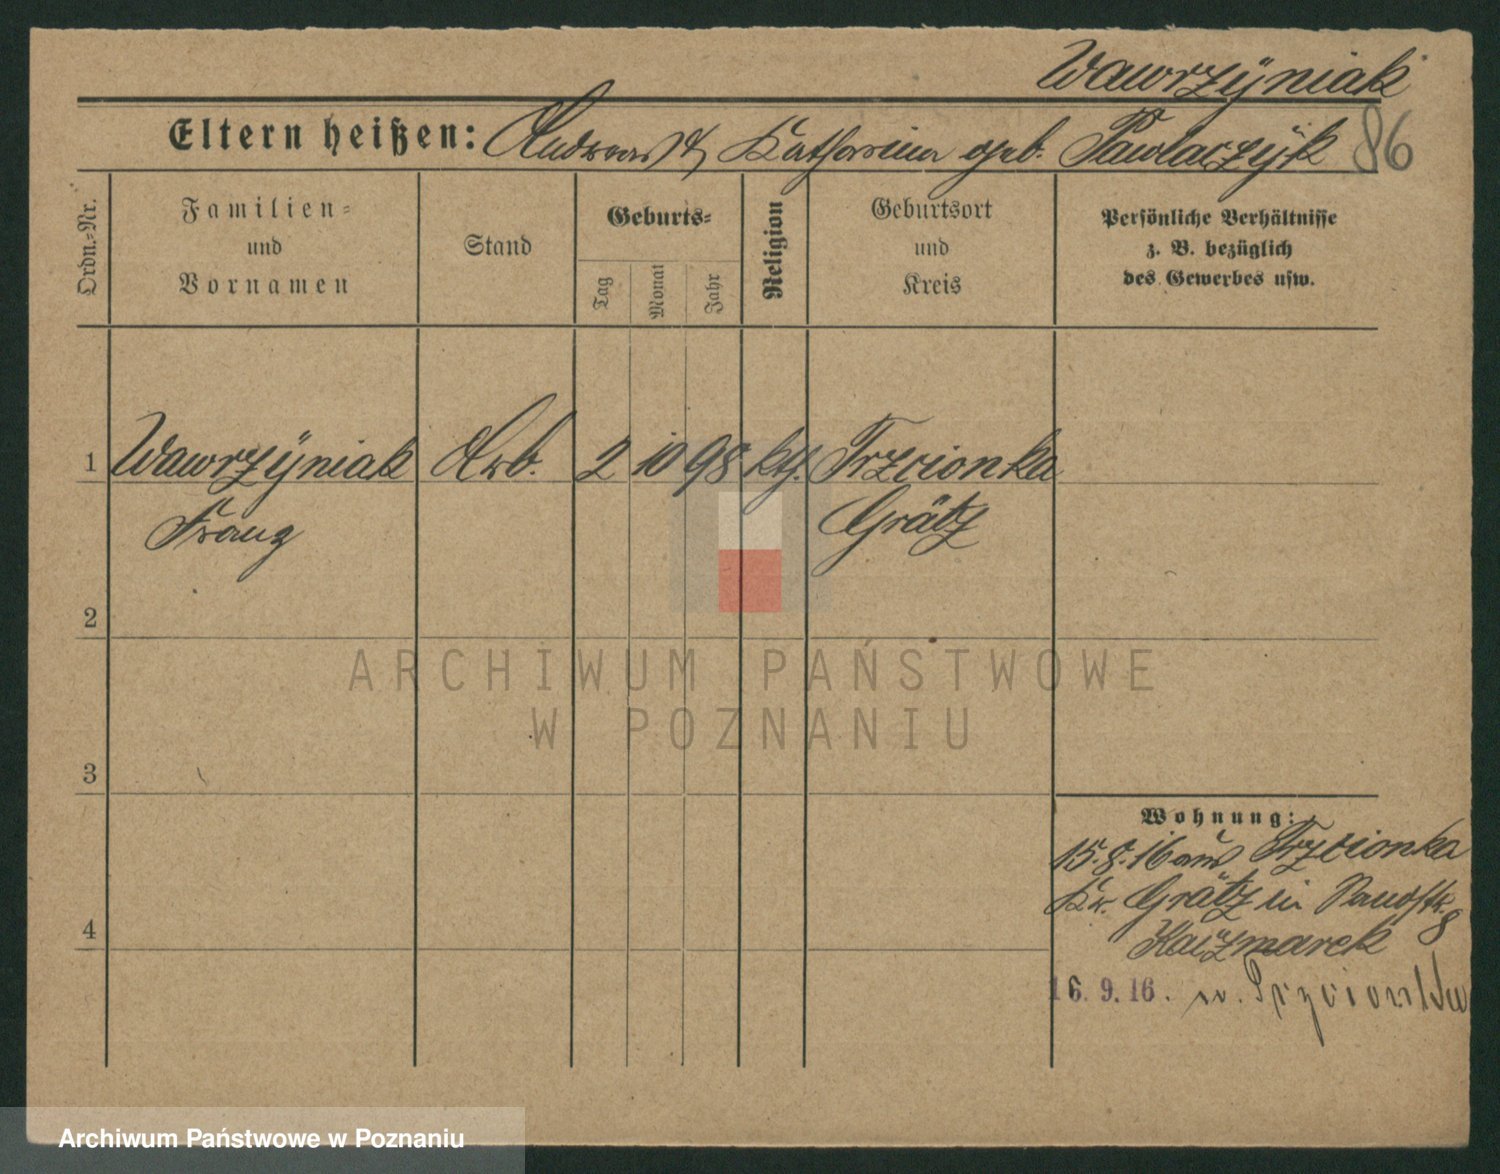 Wawrzÿniak
Eltern heißen: Andreas & Katharina geb. Pawlaczÿk 86
Ordn.=Nr.
Familien=
und
Vornamen
Stand
Geburts=
Tag
Monat
Jahr
Religion
Geburtsort
und
Kreis
Persönliche Verhältnisse
z. B. bezüglich
des Gewerbes usw.
1 Wawrzÿniak Arb. 2 10 98 kth. Trzcionka
Franz Grätz
2
ARCHIWUM PAŃSTWOWE
W POZNANIU
3
Wohnung:
15.8.16 aus Trzcionka
Kr. Grätz in 8
4
Kaczmarek
16.9.16. n. Trzcionka
Archiwum Państwowe w Poznaniu